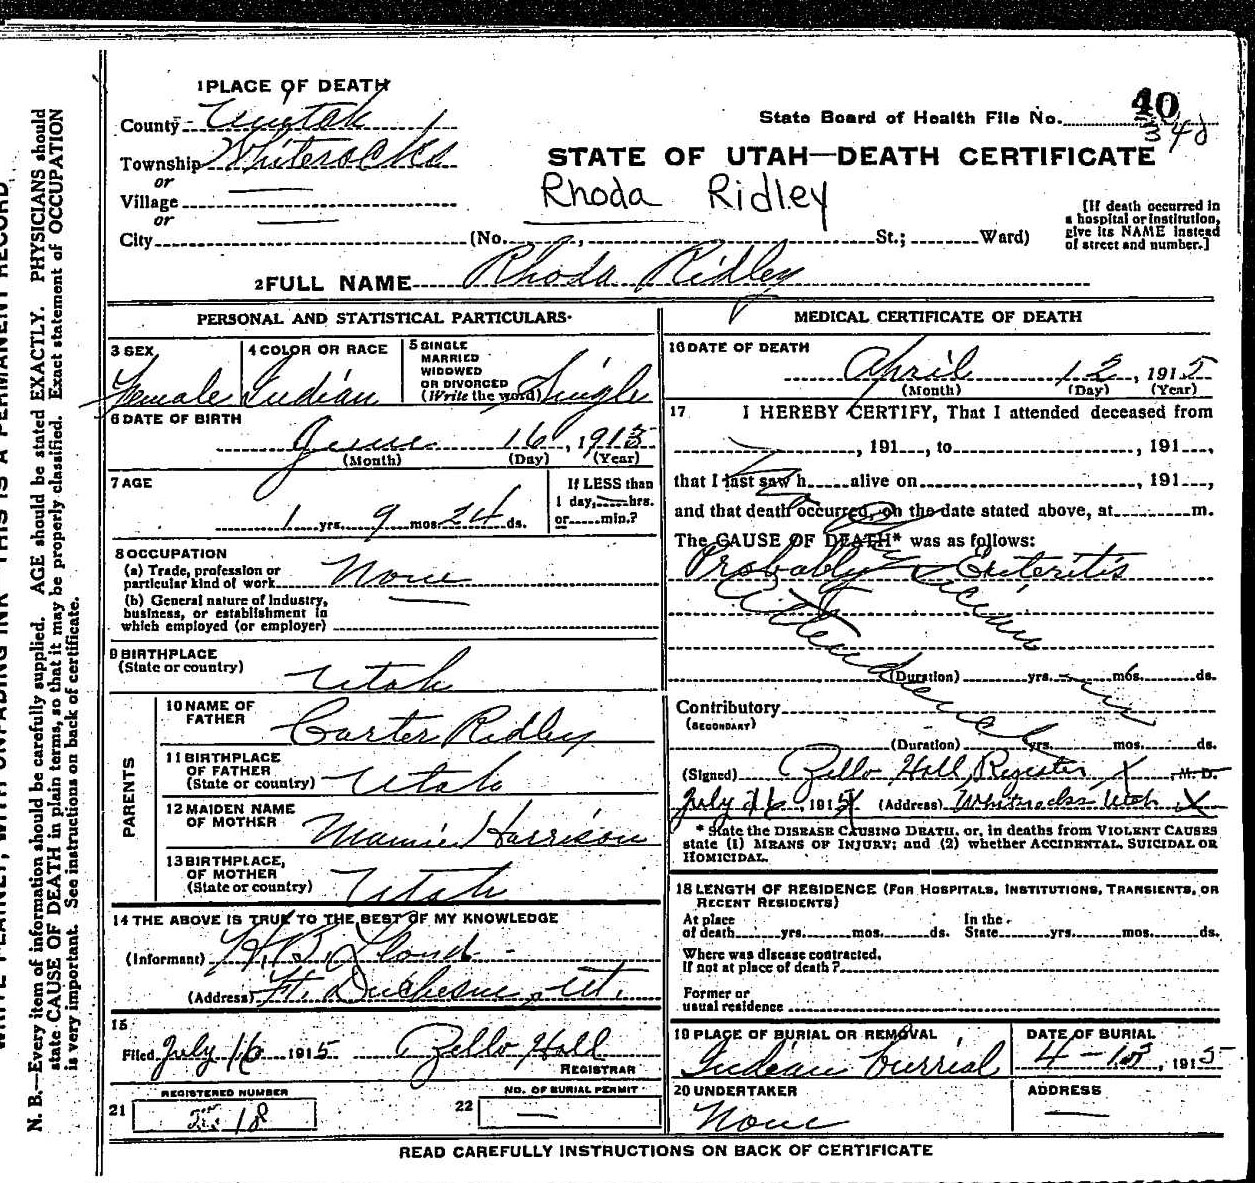 1 PLACE OF DEATH
County Uintah
State Board of Health File No. 40
348
Township Whiterocks
STATE OF UTAH—DEATH CERTIFICATE
or
Village
Rhoda Ridley
or
City (No. , St.; Ward)
[If death occurred in a hospital or institution, give its NAME instead of street and number.]
2 FULL NAME Rhoda Ridley
PERSONAL AND STATISTICAL PARTICULARS
3 SEX
Female
4 COLOR OR RACE
Indian
5 SINGLE
MARRIED
WIDOWED
OR DIVORCED
(Write the word) Single
6 DATE OF BIRTH
June 16, 1913
(Month) (Day) (Year)
7 AGE
1 yrs. 9 mos. 24 ds.
If LESS than
1 day, hrs.
or min.?
8 OCCUPATION
(a) Trade, profession or
particular kind of work None
(b) General nature of industry,
business, or establishment in
which employed (or employer)
9 BIRTHPLACE
(State or country) Utah
PARENTS
10 NAME OF
FATHER Carter Ridley
11 BIRTHPLACE
OF FATHER
(State or country) Utah
12 MAIDEN NAME
OF MOTHER Mamie Harrison
13 BIRTHPLACE,
OF MOTHER
(State or country) Utah
14 THE ABOVE IS TRUE TO THE BEST OF MY KNOWLEDGE
(Informant) H. B. Lloud
(Address) Ft. Duchesne, Ut.
15
Filed July 16 1915 Zello Hall
REGISTRAR
REGISTERED NUMBER
21 18
NO. OF BURIAL PERMIT
22 —
MEDICAL CERTIFICATE OF DEATH
16 DATE OF DEATH
April 12, 1915
(Month) (Day) (Year)
17 I HEREBY CERTIFY, That I attended deceased from
, 191 , to , 191 ,
that I last saw h alive on , 191 ,
and that death occurred, on the date stated above, at m.
The CAUSE OF DEATH* was as follows:
Probably Enteritis
No Physician in
attendance
(Duration) yrs. mos. ds.
Contributory
(SECONDARY)
(Duration) yrs. mos. ds.
(Signed) Zello Hall, Register X, M. D.
July 16, 1915 (Address) Whiterocks Utah X
* State the DISEASE CAUSING DEATH, or, in deaths from VIOLENT CAUSES
state (1) MEANS OF INJURY; and (2) whether ACCIDENTAL, SUICIDAL OR
HOMICIDAL.
18 LENGTH OF RESIDENCE (FOR HOSPITALS, INSTITUTIONS, TRANSIENTS, OR
RECENT RESIDENTS)
At place
of death yrs. mos. ds.
In the
State yrs. mos. ds.
Where was disease contracted,
If not at place of death?
Former or
usual residence
19 PLACE OF BURIAL OR REMOVAL
Indian burrial
DATE OF BURIAL
4-13, 1915
20 UNDERTAKER
None
ADDRESS
—
READ CAREFULLY INSTRUCTIONS ON BACK OF CERTIFICATE
N. B.—Every item of information should be carefully supplied. AGE should be stated EXACTLY. PHYSICIANS should
state CAUSE OF DEATH in plain terms, so that it may be properly classified. Exact statement of OCCUPATION
is very important. See instructions on back of certificate.